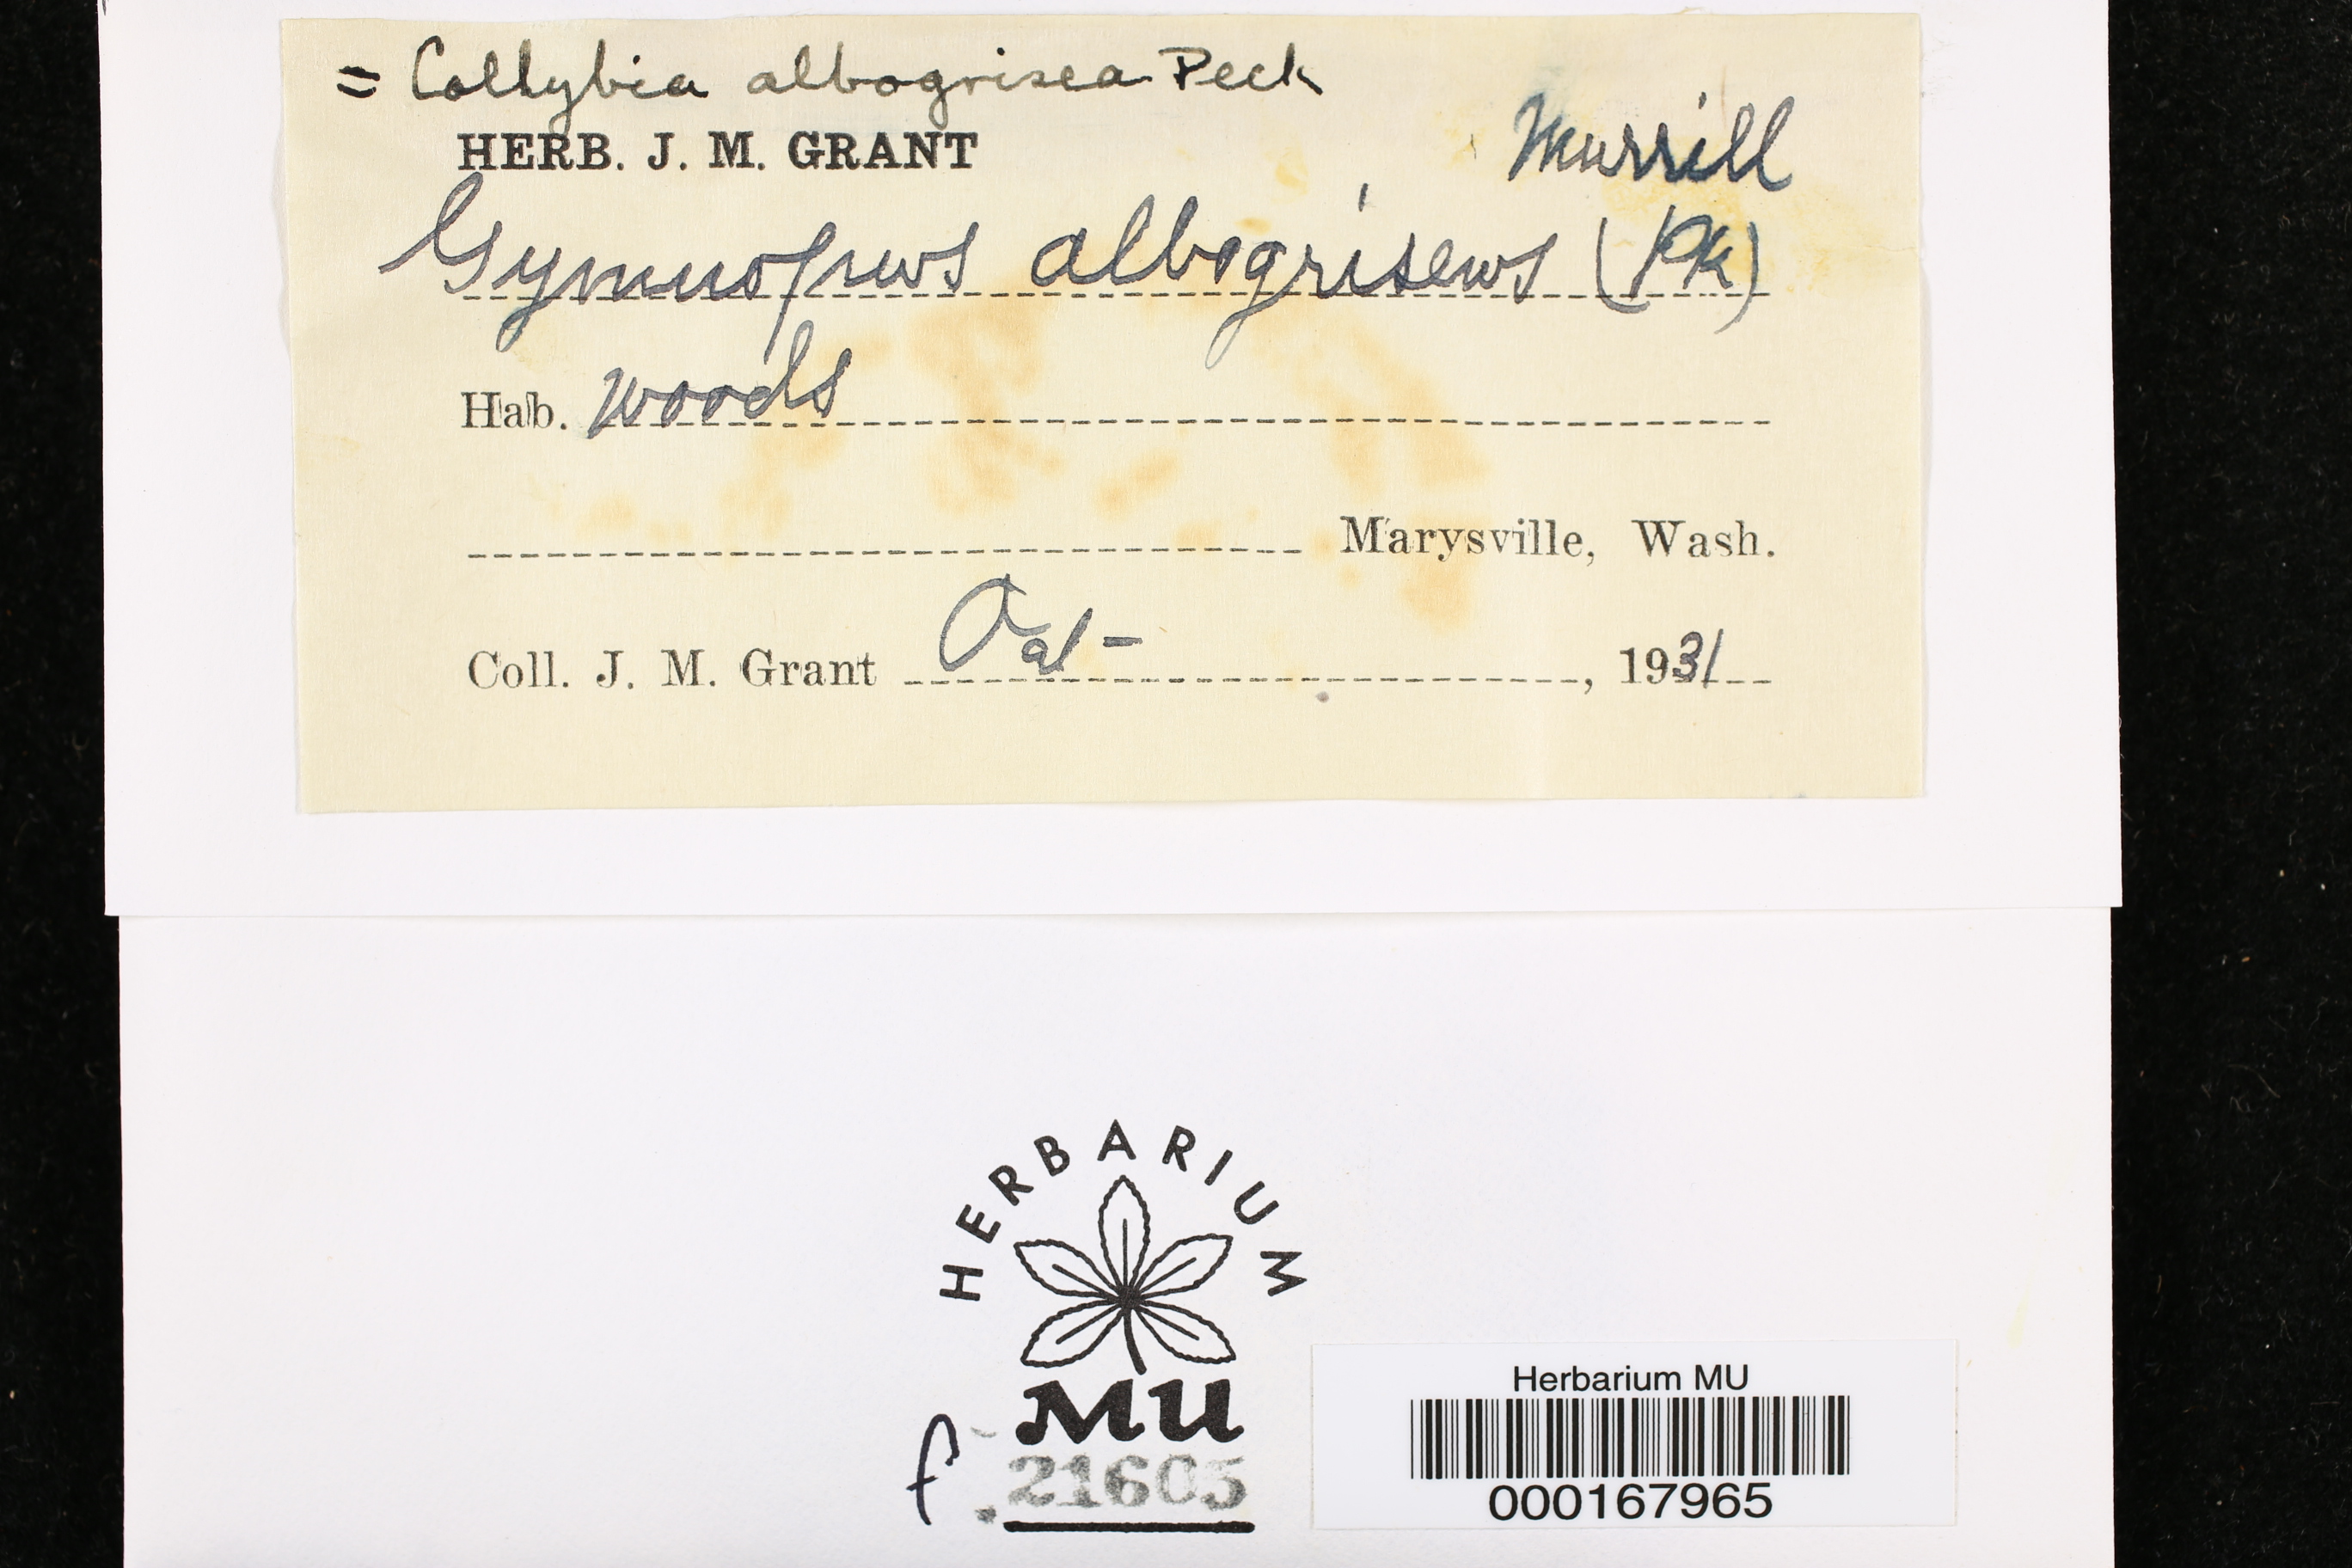 = Collybia albogrisea Peck
HERB. J. M. GRANT
Murrill
Gymnopus albogriseus (Pk)
Hab. Woods
Marysville, Wash.
Coll. J. M. Grant Oct-, 1931
HERBARIUM
MU
f. 21605
Herbarium MU
000167965